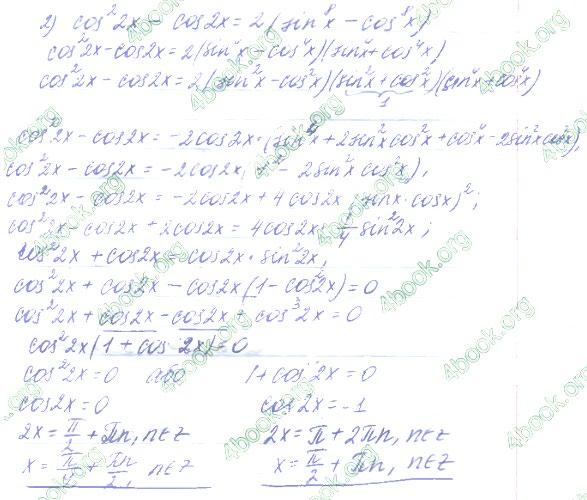 2) cos²2x - cos2x = 2(sin⁸x - cos⁸x)
cos²2x - cos2x = 2(sin⁴x - cos⁴x)(sin⁴x + cos⁴x)
cos²2x - cos2x = 2(sin²x - cos²x)(sin²x + cos²x)(sin⁴x + cos⁴x)
1
cos²2x - cos2x = -2cos2x·(sin⁴x + 2sin²x cos²x + cos⁴x - 2sin²x cos²x);
cos²2x - cos2x = -2cos2x(1 - 2sin²x cos²x);
cos²2x - cos2x = -2cos2x + 4cos2x(sinx·cosx)²;
cos²2x - cos2x + 2cos2x = 4cos2x·1/4 sin²2x;
cos²2x + cos2x = cos2x·sin²2x;
cos²2x + cos2x - cos2x(1 - cos²2x) = 0
cos²2x + cos2x - cos2x + cos³2x = 0
cos²2x(1 + cos2x) = 0
cos²2x = 0 або 1 + cos2x = 0
cos2x = 0 cos2x = -1
2x = π/2 + πn, n∈Z 2x = π + 2πn, n∈Z
x = π/ + πn/2, n∈Z x = π/2 + πn, n∈Z
4book.org
4book.org
4book.org
4book.org
4book.org
4book.org
4book.org
4book.org
4book.org